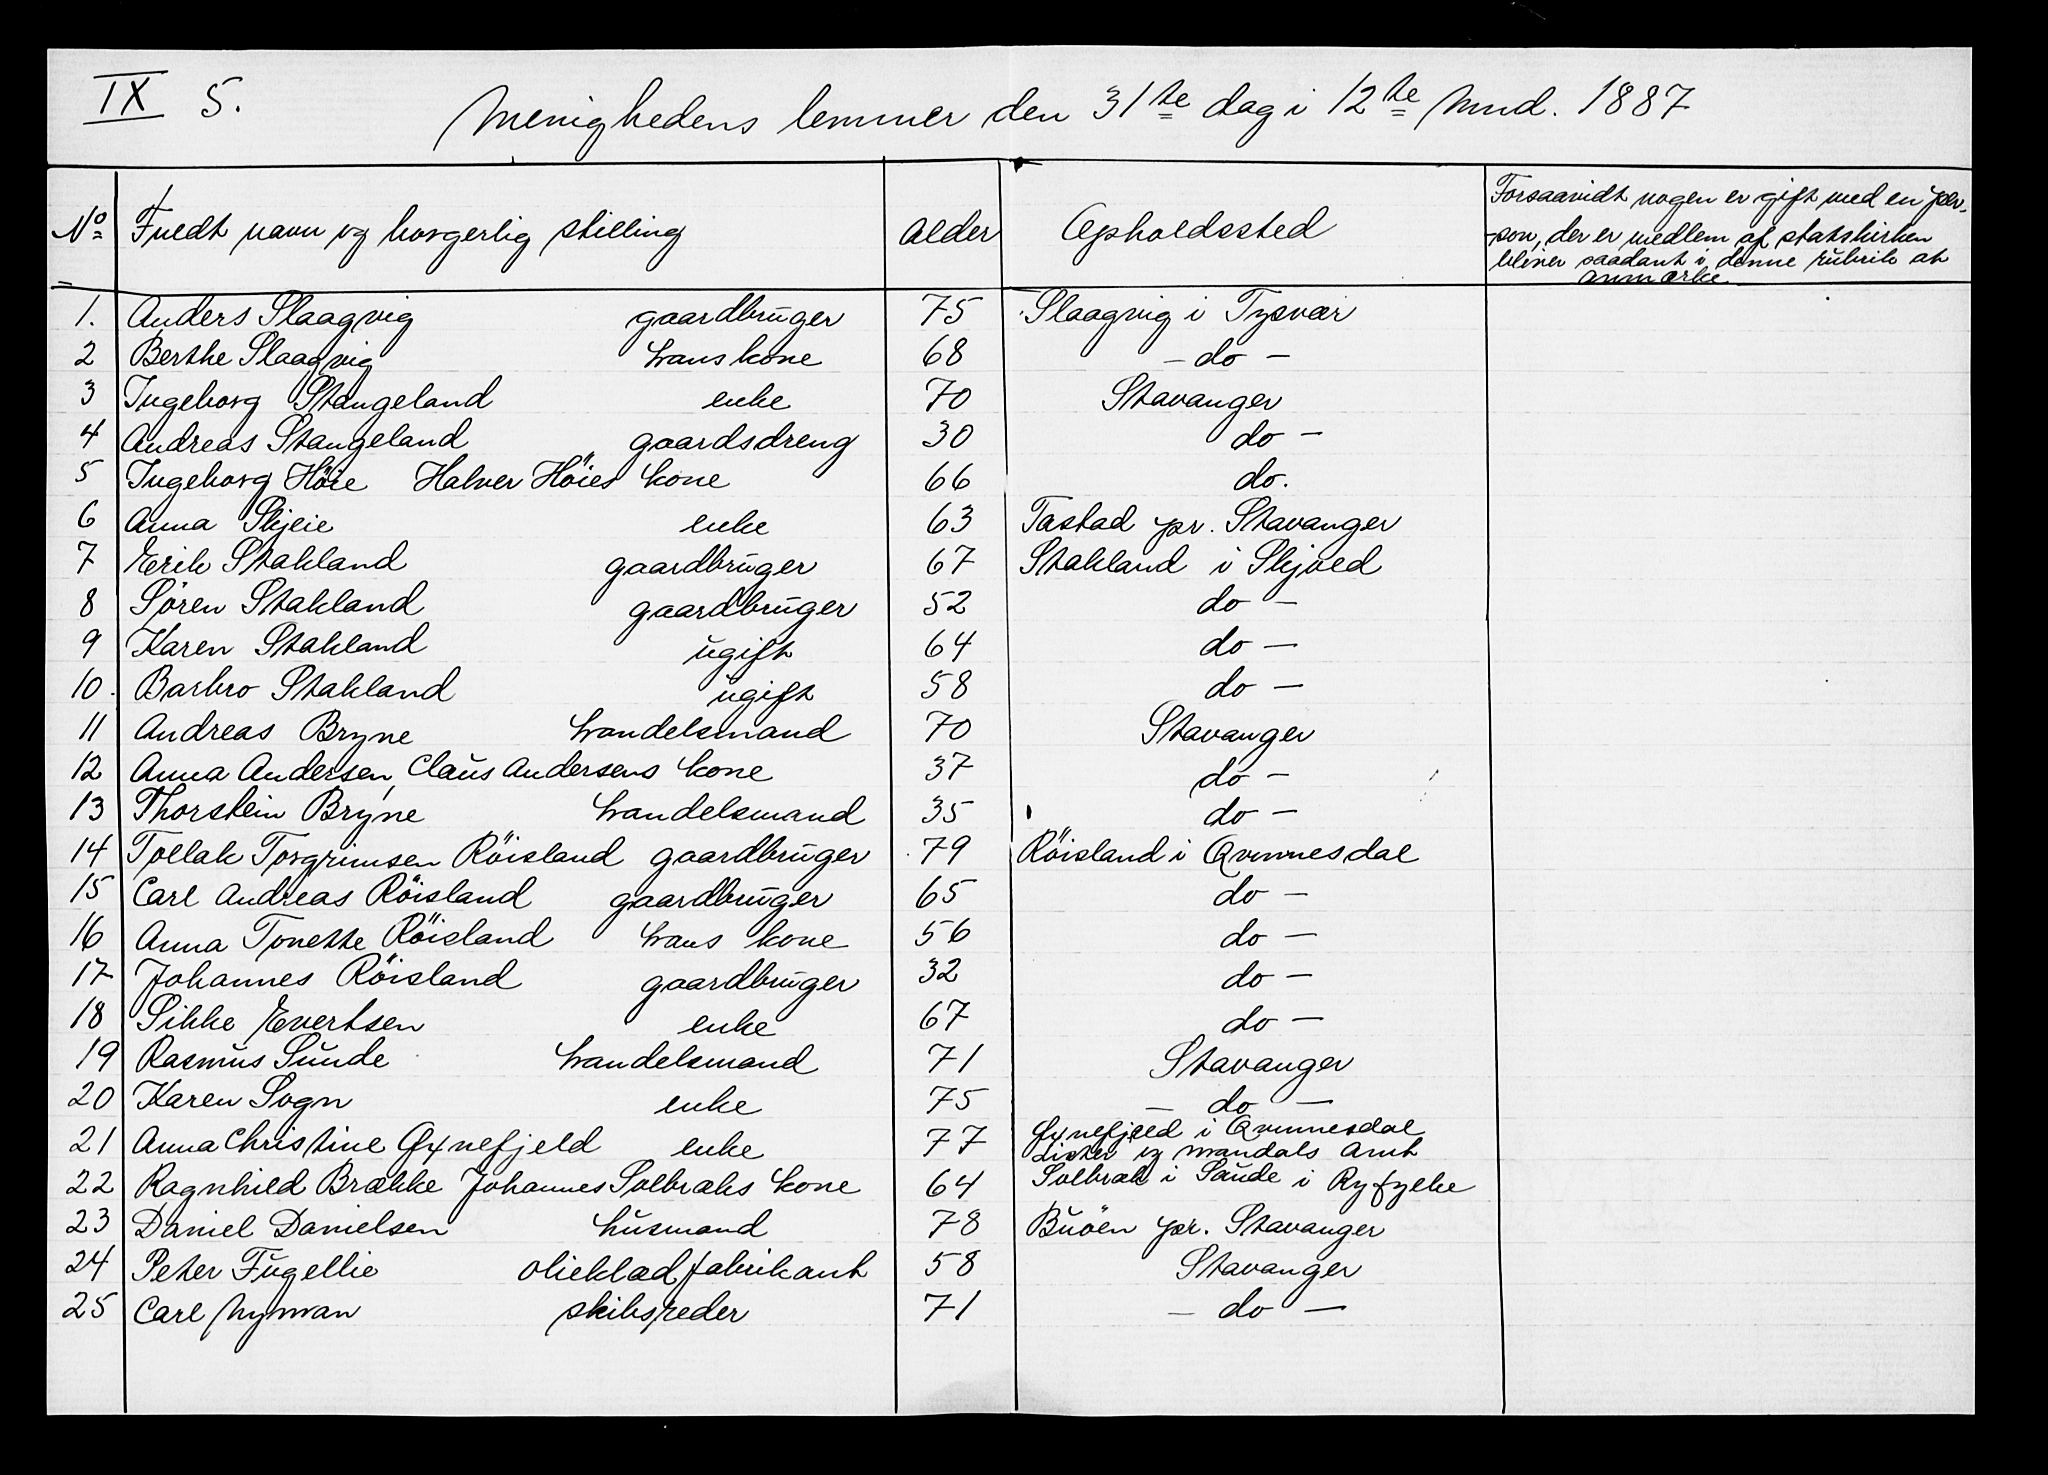 IX 5.
Menighedens lemmer den 31te dag i 12te Mnd. 1887
No Fuldt navn og borgerlig stilling alder Opholdssted Forsaavidt nogen er gift med en per-
son, der er medlem af statskirken
bliver saadant i denne rubrik at
anmærke.
1. Anders Slaagvig gaardbruger 75 Slaagvig i Tysvær
2 Berthe Slaagvig hans kone 68 - do -
3 Ingeborg Stangeland enke 70 Stavanger
4 Andreas Stangeland gaardsdreng 30 do -
5 Ingeborg Höie Halver Höies kone 66 do.
6 Anna Skjeie enke 63 Tastad pr. Stavanger
7 Erik Stakland gaardbruger 67 Stakland i Skjold
8 Sören Stakland gaardbruger 52 do -
9 Karen Stakland ugift 64 do -
10. Barbro Stakland ugift 58 do -
11 Andreas Bryne handelsmand 70 Stavanger
12 Anna Andersen, Claus Andersens kone 37 do -
13 Thorstein Bryne handelsmand 35 do -
14 Tollak Torgrimsen Röisland gaardbruger 79 Röisland i Qvinnesdal
15 Carl Andreas Röisland gaardbruger 65 do -
16 Anna Tonette Röisland hans kone 56 do -
17 Johannes Röisland gaardbruger 32 do -
18 Sikke Evertsen enke 67 do -
19 Rasmus Sunde handelsmand 71 Stavanger
20 Karen Sogn enke 75 - do -
21 Anna Christine Gxnefjeld enke 77 Gxnefjeld i Qvinnesdal
Lister og mandals Amt
22 Ragnhild Brække Johannes Solbraks kone 64 Solbrak i Saude i Ryfylke
23 Daniel Danielsen husmand 78 Buöen pr. Stavanger
24 Peter Fugellie olieklædfabrikant 58 Stavanger
25 Carl Nyman skibsreder 71 - do -